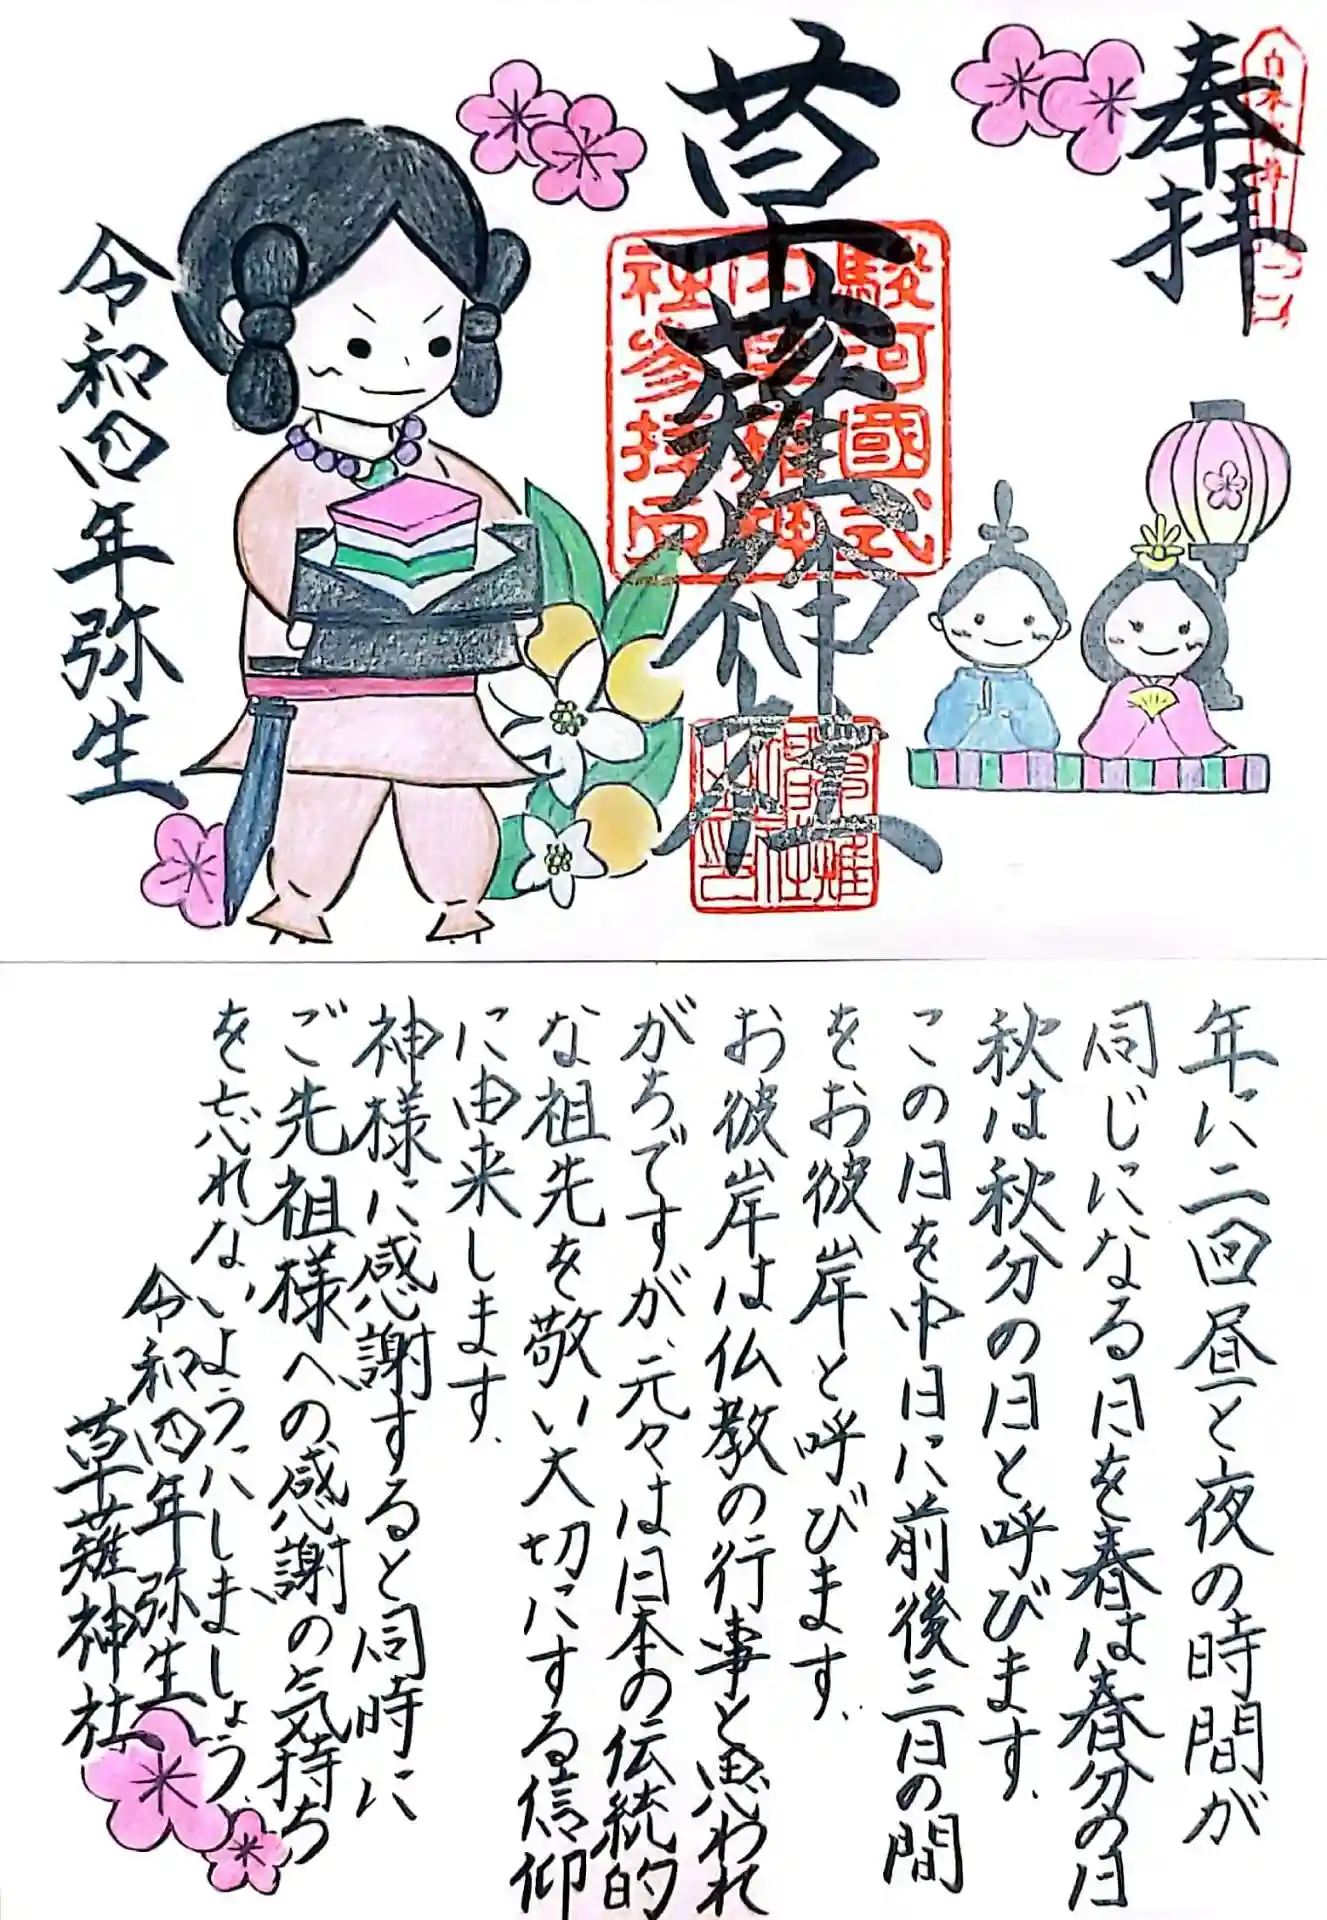 奉拝
草薙神社
令和四年弥生
年に二回昼と夜の時間が
同じになる日を春は春分の日
秋は秋分の日と呼びます.
この日を中日に前後三日の間
をお彼岸と呼びます.
お彼岸は仏教の行事と思われ
がちですが、元々は日本の伝統的
な祖先を敬い大切にする信仰
に由来します.
神様に感謝すると同時に
ご先祖様への感謝の気持ち
を忘れないようにしましょう.
令和四年弥生
草薙神社